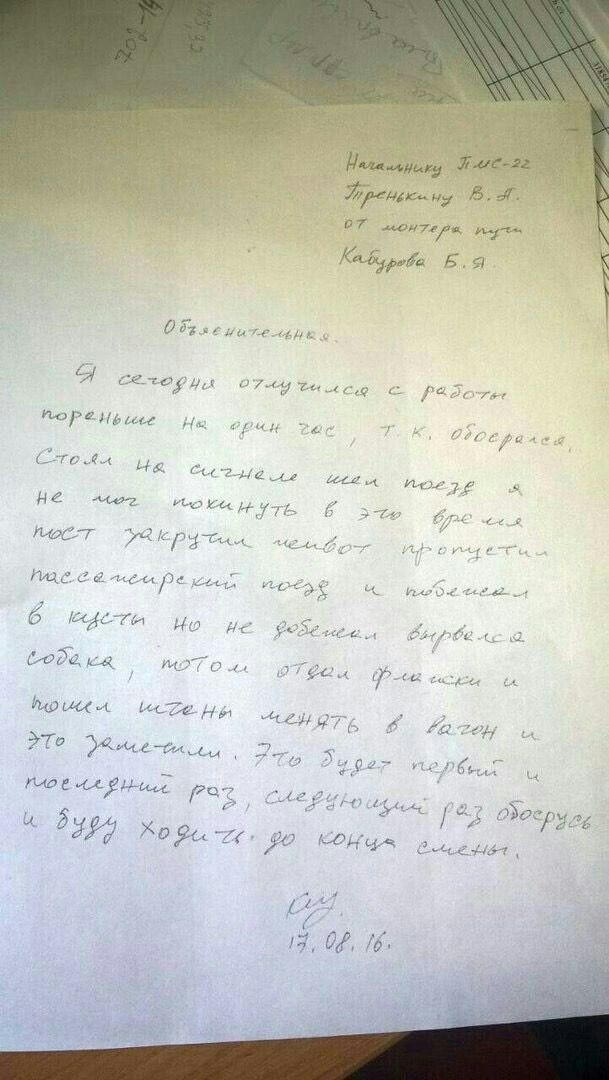 702-14
Начальнику ПМС-22
Тренькину В.А.
от монтера пути
Кабурова Б.Я.
Объяснительная.
Я сегодня отлучился с работы
пораньше на один час, т.к. обосрался.
Стоял на сигнале шел поезд я
не мог покинуть в это время
пост закрутил живот пропустил
пассажирский поезд и побежал
в кусты но не добежал вырвался
собака, потом отдал флажки и
пошел штаны менять в вагон и
это заметили. Это будет первый и
последний раз, следующий раз обосрусь
и буду ходить до конца смены.
17.08.16.